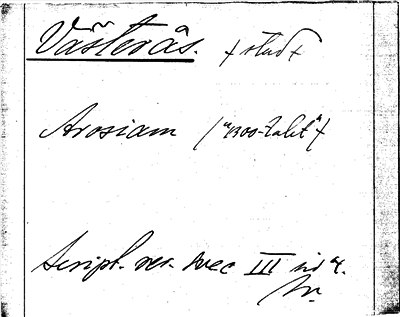 Västerås. + stad +
Arosiam ("1300-talet")
Script. rer. svec III sid 4.